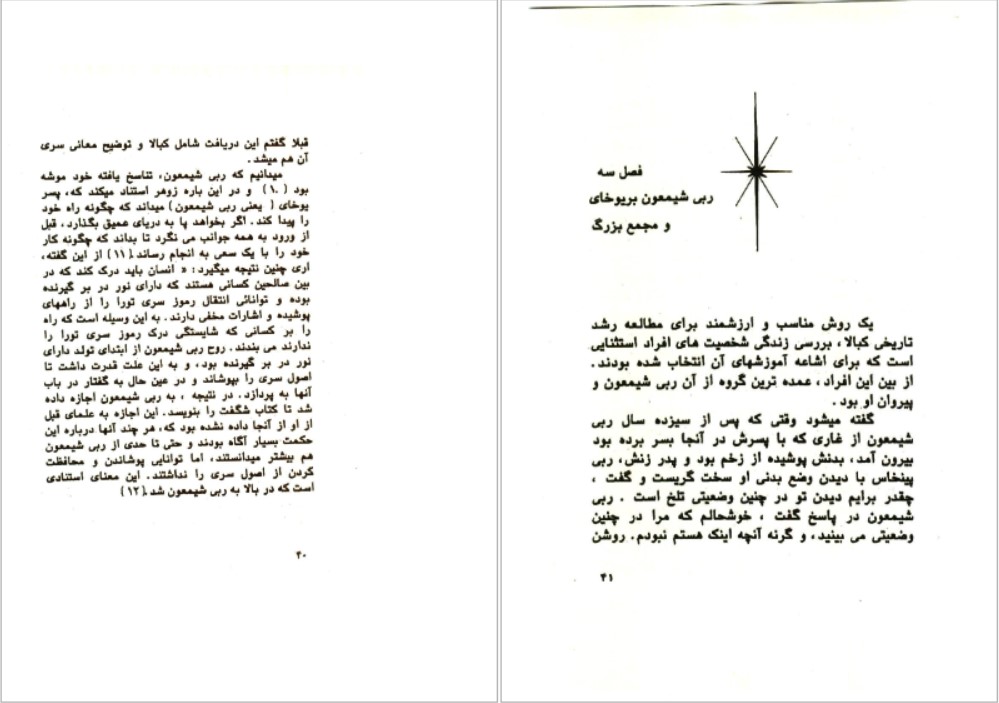 قبلا گفتم این دریافت شامل کبالا و توضیح معانی سری
آن هم میشد .
میدانیم که ربی شیمعون، تناسخ یافته خود موشه
بود ( ۱۰) و در این باره زوهر استناد میکند که، پسر
یوخای ( یعنی ربی شیمعون ) میداند که چگونه راه خود
را پیدا کند . اگر بخواهد پا به دریای عمیق بگذارد ، قبل
از ورود به همه جوانب می نگرد تا بداند که چگونه کار
خود را با یک سعی به انجام رساند.( ۱۱) از این گفته،
اری چنین نتیجه میگیرد : « انسان باید درک کند که در
بین صالحین کسانی هستند که دارای نور در بر گیرنده
بوده و توانائی انتقال رموز سری تورا را از راههای
پوشیده و اشارات مخفی دارند . به این وسیله است که راه
را بر کسانی که شایستگی درک رموز سری تورا را
ندارند می بندند . روح ربی شیمعون از ابتدای تولد دارای
نور در بر گیرنده بود ، و به این علت قدرت داشت تا
اصول سری را بپوشاند و در عین حال به گفتار در باب
آنها به پردازد . در نتیجه ، به ربی شیمعون اجازه داده
شد تا کتاب شگفت را بنویسد . این اجازه به علمای قبل
از او از آنجا داده نشده بود که، هر چند آنها درباره این
حکمت بسیار آگاه بودند و حتی تا حدی از ربی شیمعون
هم بیشتر میدانستند، اما توانایی پوشاندن و محافظت
کردن از اصول سری را نداشتند. این معنای استنادی
است که در بالا به ربی شیمعون شد.( ۱۲)
۴۰
فصل سه
ربی شیمعون بریوخای
و مجمع بزرگ
یک روش مناسب و ارزشمند برای مطالعه رشد
تاریخی کبالا ، بررسی زندگی شخصیت های افراد استثنایی
است که برای اشاعه آموزشهای آن انتخاب شده بودند .
از بین این افراد ، عمده ترین گروه از آن ربی شیمعون و
پیروان او بود .
گفته میشود وقتی که پس از سیزده سال ربی
شیمعون از غاری که با پسرش در آنجا بسر برده بود
بیرون آمد، بدنش پوشیده از زخم بود و پدر زنش، ربی
پینخاس با دیدن وضع بدنی او سخت گریست و گفت ،
چقدر برایم دیدن تو در چنین وضعیتی تلخ است . ربی
شیمعون در پاسخ گفت ، خوشحالم که مرا در چنین
وضعیتی می بینید ، و گرنه آنچه اینک هستم نبودم. روشن
۴۱